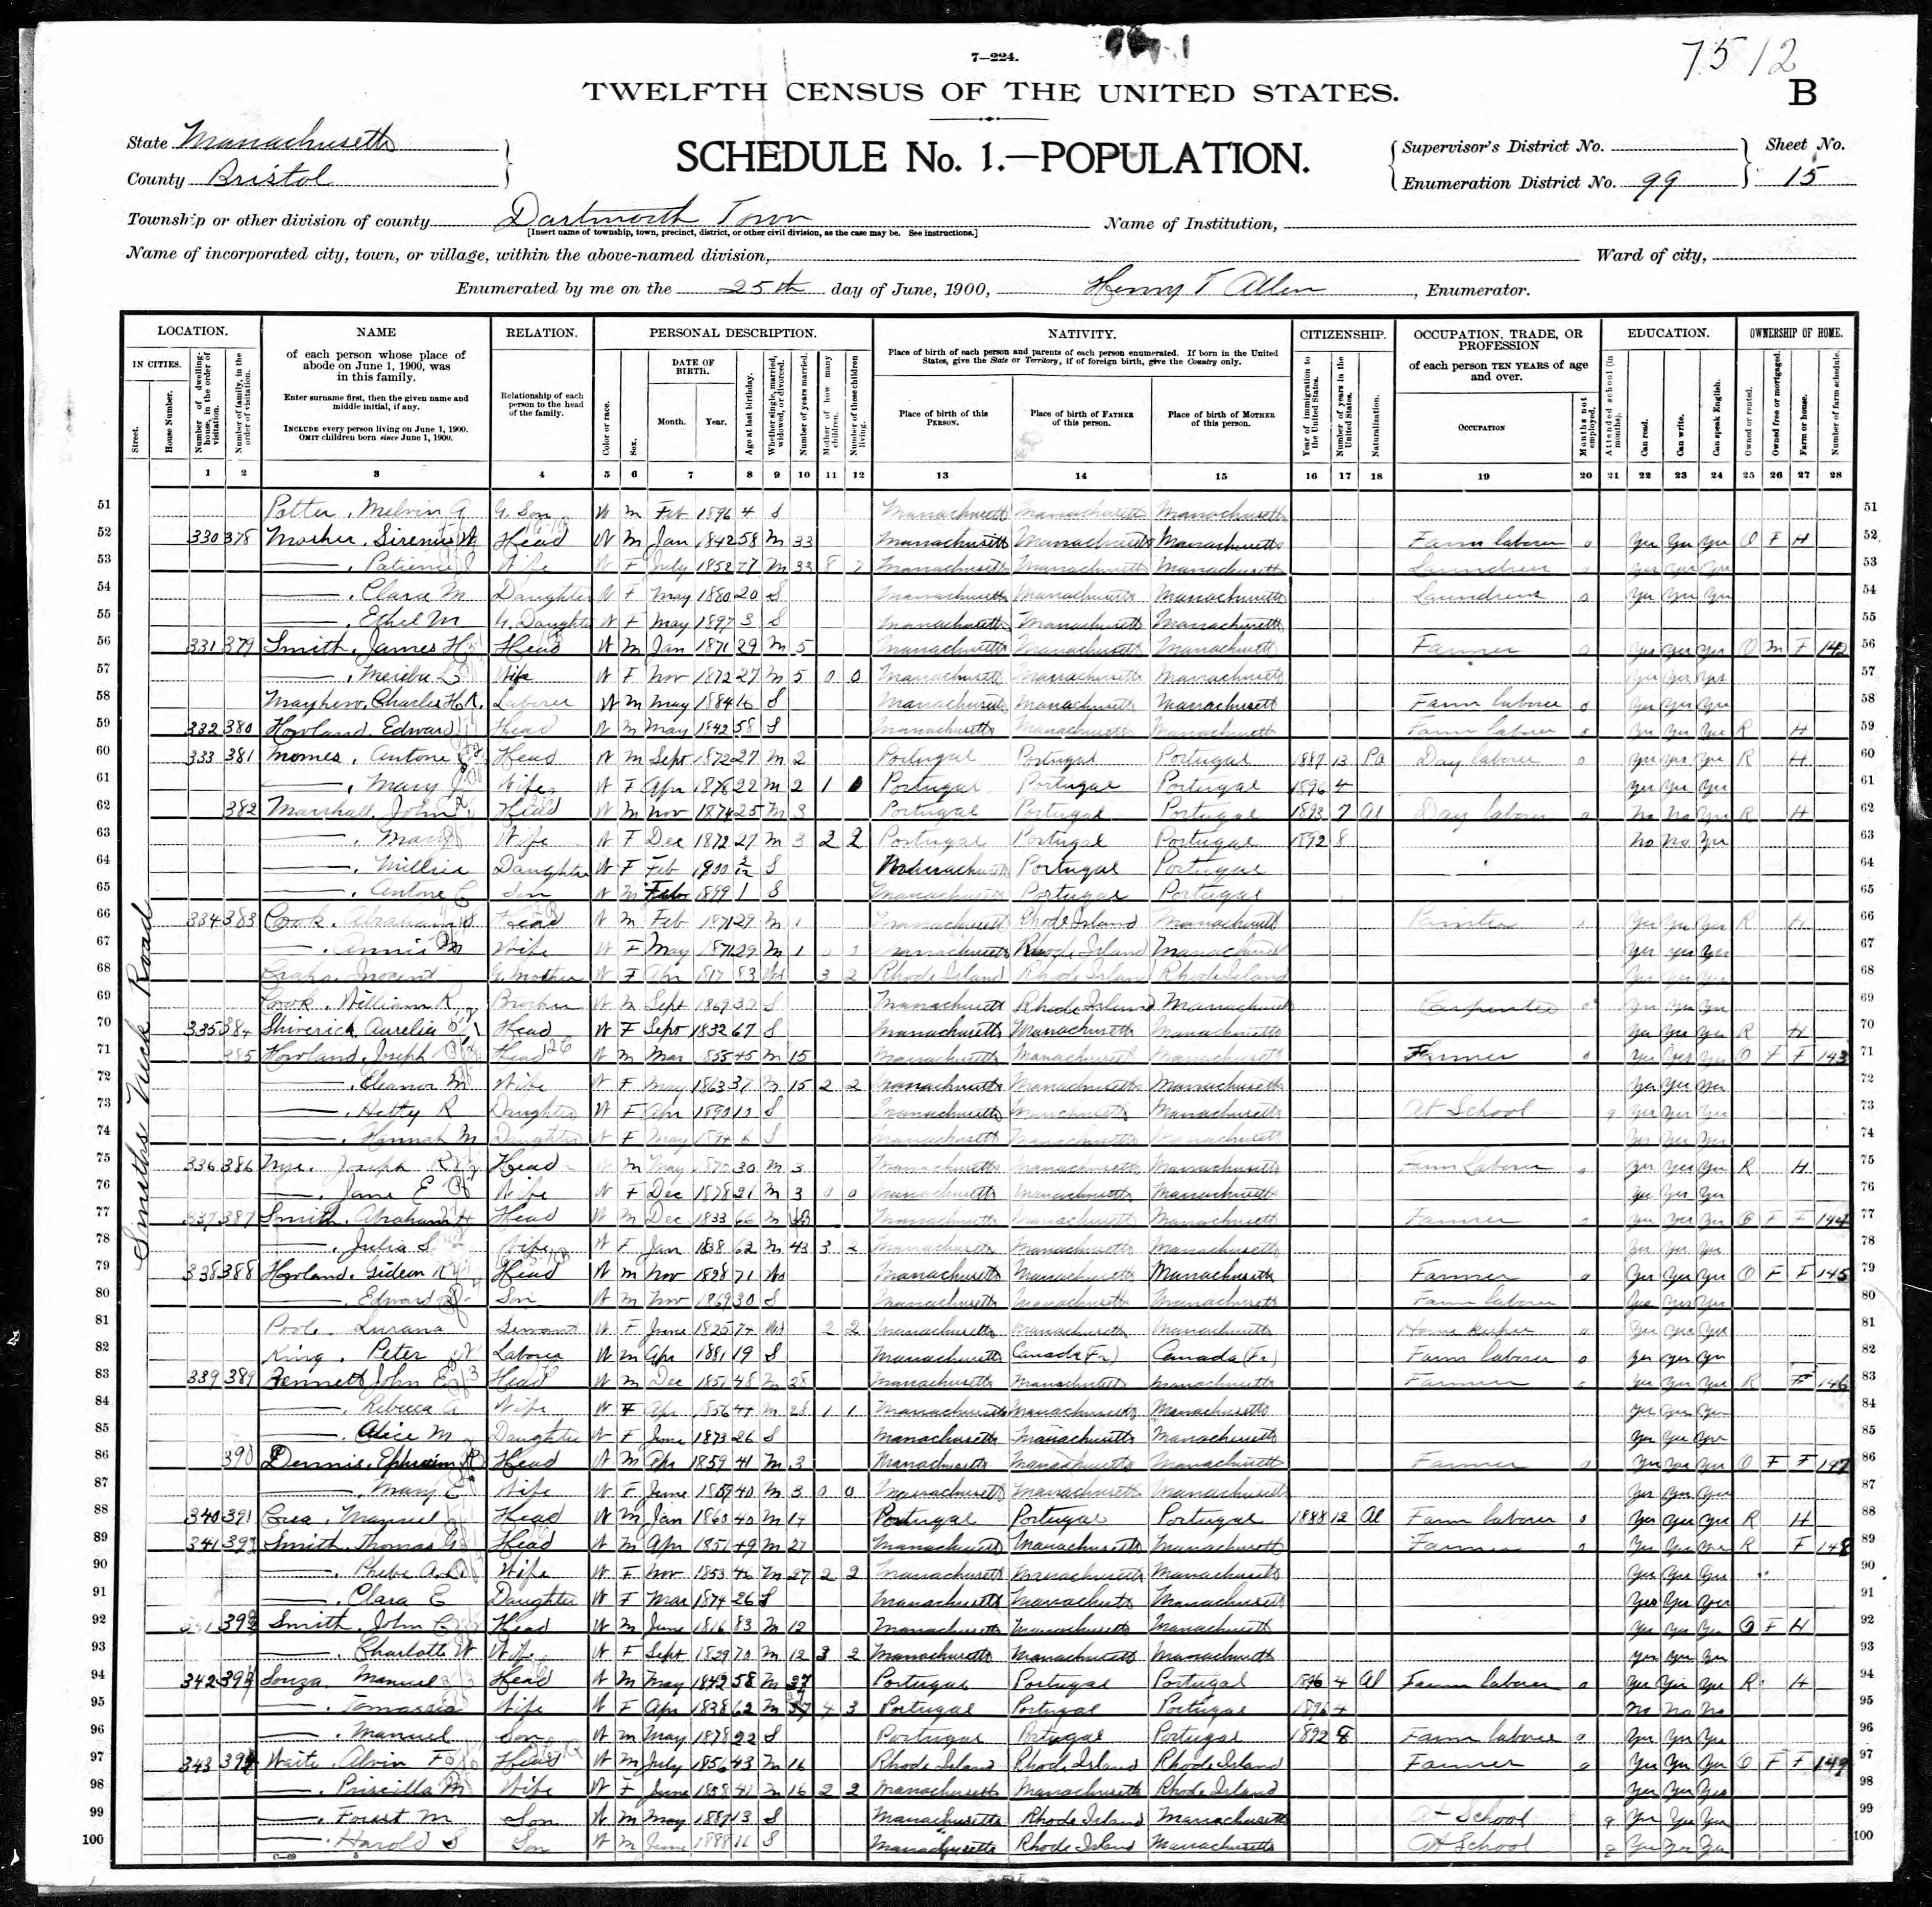 7—224.
75 12
TWELFTH CENSUS OF THE UNITED STATES.
B
State Massachusetts
County Bristol
SCHEDULE No. 1.—POPULATION.
Supervisor's District No.
Enumeration District No. 99
Sheet No.
15
Township or other division of county Dartmouth Town
[Insert name of township, town, precinct, district, or other civil division, as the case may be. See instructions.]
Name of Institution,
Name of incorporated city, town, or village, within the above-named division,
Ward of city,
Enumerated by me on the 25th day of June, 1900, Henry T Allen, Enumerator.
LOCATION. NAME RELATION. PERSONAL DESCRIPTION. NATIVITY. CITIZENSHIP. OCCUPATION, TRADE, OR PROFESSION EDUCATION. OWNERSHIP OF HOME.
IN CITIES.
Street.
House Number.
Number of dwelling-house, in the order of visitation.
Number of family, in the order of visitation.
of each person whose place of abode on June 1, 1900, was in this family.
Enter surname first, then the given name and middle initial, if any.
INCLUDE every person living on June 1, 1900.
OMIT children born since June 1, 1900.
Relationship of each person to the head of the family.
Color or race.
Sex.
DATE OF BIRTH.
Month. Year.
Age at last birthday.
Whether single, married, widowed, or divorced.
Number of years married.
Mother of how many children.
Number of these children living.
Place of birth of each person and parents of each person enumerated. If born in the United States, give the State or Territory; if of foreign birth, give the Country only.
Place of birth of this PERSON.
Place of birth of FATHER of this person.
Place of birth of MOTHER of this person.
Year of immigration to the United States.
Number of years in the United States.
Naturalization.
of each person TEN YEARS of age and over.
OCCUPATION
Months not employed.
Attended school (in months).
Can read.
Can write.
Can speak English.
Owned or rented.
Owned free or mortgaged.
Farm or house.
Number of farm schedule.
1 2 3 4 5 6 7 8 9 10 11 12 13 14 15 16 17 18 19 20 21 22 23 24 25 26 27 28
Smiths Neck Road
51 Potter, Melvin G. Son W M Feb 1896 4 S Massachusetts Massachusetts Massachusetts 51
52 330 378 Mosher, Head W M Jan 1842 58 M 33 Massachusetts Massachusetts Massachusetts Farm laborer 0 Yes Yes Yes O F H 52
53 Wife W F July 1852 47 M 33 8 7 Massachusetts Massachusetts Massachusetts Laundress Yes Yes Yes 53
54 Clara M Daughter W F May 1880 20 S Massachusetts Massachusetts Massachusetts Laundress 0 Yes Yes Yes 54
55 Ethel M G. Daughter W F May 1897 3 S Massachusetts Massachusetts Massachusetts 55
56 331 379 Smith, James H Head W M Jan 1871 29 M 5 Massachusetts Massachusetts Massachusetts Farmer 0 Yes Yes Yes O M F 142 56
57 Wife W F Nov 1872 27 M 5 0 0 Massachusetts Massachusetts Massachusetts Yes Yes Yes 57
58 Mayhew, Charles H. R. Laborer W M May 1884 16 S Massachusetts Massachusetts Massachusetts Farm laborer 0 Yes Yes Yes 58
59 332 380 Howland, Edward Head W M May 1842 58 S Massachusetts Massachusetts Massachusetts Farm laborer Yes Yes Yes R H 59
60 333 381 Momes, Antone Head W M Sept 1872 27 M 2 Portugal Portugal Portugal 1887 13 Pa Day laborer 0 Yes Yes Yes R H 60
61 Mary Wife W F Apr 1878 22 M 2 1 Portugal Portugal Portugal 1896 4 Yes Yes Yes 61
62 382 Marshall, John Head W M Nov 1874 25 M 3 Portugal Portugal Portugal 1893 7 Al Day laborer 0 No No Yes R H 62
63 Mary Wife W F Dec 1872 27 M 3 2 2 Portugal Portugal Portugal 1892 8 No No Yes 63
64 Millie Daughter W F Feb 1900 3/12 S Massachusetts Portugal Portugal 64
65 Antone C Son W M Feb 1899 1 S Massachusetts Portugal Portugal 65
66 334 383 Cook, Abraham Head W M Feb 1871 29 M 1 Massachusetts Rhode Island Massachusetts Painter Yes Yes Yes R H 66
67 Annie M Wife W F May 1871 29 M 1 Massachusetts Rhode Island Massachusetts Yes Yes Yes 67
68 G. Mother W F Apr 1817 83 Wd 3 2 Rhode Island Rhode Island Rhode Island Yes Yes Yes 68
69 Cook, William R Brother W M Sept 1869 30 S Massachusetts Rhode Island Massachusetts Carpenter 0 Yes Yes Yes 69
70 335 384 Shiverick, Aurelia Head W F Sept 1832 67 S Massachusetts Massachusetts Massachusetts Yes Yes Yes R H 70
71 385 Howland, Joseph Head W M Mar 1855 45 M 15 Massachusetts Massachusetts Massachusetts Farmer 0 Yes Yes Yes O F F 143 71
72 Eleanor M Wife W F May 1863 37 M 15 2 2 Massachusetts Massachusetts Massachusetts Yes Yes Yes 72
73 Hetty R Daughter W F Apr 1890 10 S Massachusetts Massachusetts Massachusetts At School 9 Yes Yes Yes 73
74 Hannah M Daughter W F May 1894 6 S Massachusetts Massachusetts Massachusetts Yes Yes Yes 74
75 336 386 Nye, Joseph R Head W M May 1870 30 M 3 Massachusetts Massachusetts Massachusetts Farm Laborer 0 Yes Yes Yes R H 75
76 Jane E Wife W F Dec 1878 21 M 3 0 0 Massachusetts Massachusetts Massachusetts Yes Yes Yes 76
77 337 387 Smith, Abraham H Head W M Dec 1833 66 M 43 Massachusetts Massachusetts Massachusetts Farmer 0 Yes Yes Yes O F F 144 77
78 Julia S Wife W F Jan 1838 62 M 43 3 2 Massachusetts Massachusetts Massachusetts Yes Yes Yes 78
79 338 388 Howland, Gideon Head W M Nov 1828 71 Wd Massachusetts Massachusetts Massachusetts Farmer 0 Yes Yes Yes O F F 145 79
80 Edward Son W M Nov 1869 30 S Massachusetts Massachusetts Massachusetts Farm laborer Yes Yes Yes 80
81 Poole, Lurana Servant W F June 1825 74 Wd 2 2 Massachusetts Massachusetts Massachusetts House keeper 0 Yes Yes Yes 81
82 King, Peter Laborer W M Apr 1881 19 S Massachusetts Canada (Fr) Canada (Fr) Farm laborer 0 Yes Yes Yes 82
83 339 389 Bennett, John E Head W M Dec 1851 48 M 28 Massachusetts Massachusetts Massachusetts Farmer 0 Yes Yes Yes R F 146 83
84 Rebecca A Wife W F Apr 1856 44 M 28 1 1 Massachusetts Massachusetts Massachusetts Yes Yes Yes 84
85 Alice M Daughter W F June 1873 26 S Massachusetts Massachusetts Massachusetts Yes Yes Yes 85
86 390 Dennis, Ephraim R Head W M Apr 1859 41 M 3 Massachusetts Massachusetts Massachusetts Farmer 0 Yes Yes Yes O F F 147 86
87 Mary E Wife W F June 1859 40 M 3 0 0 Massachusetts Massachusetts Massachusetts Yes Yes Yes 87
88 340 391 Manuel Head W M Jan 1860 40 M 14 Portugal Portugal Portugal 1888 12 Al Farm laborer 0 Yes Yes Yes R H 88
89 341 392 Smith, Thomas G Head W M Apr 1851 49 M 27 Massachusetts Massachusetts Massachusetts Farmer 0 Yes Yes Yes R F 148 89
90 Phebe A. Wife W F Nov 1853 46 M 27 2 2 Massachusetts Massachusetts Massachusetts Yes Yes Yes 90
91 Clara E Daughter W F Mar 1874 26 S Massachusetts Massachusetts Massachusetts Yes Yes Yes 91
92 393 Smith, John Head W M June 1816 83 M 12 Massachusetts Massachusetts Massachusetts Yes Yes Yes O F H 92
93 Charlotte W Wife W F Sept 1829 70 M 12 3 2 Massachusetts Massachusetts Massachusetts Yes Yes Yes 93
94 342 394 Souza, Manuel Head W M May 1842 58 M 37 Portugal Portugal Portugal 1896 4 Al Farm laborer 0 Yes Yes Yes R H 94
95 Wife W F Apr 1838 62 M 37 4 3 Portugal Portugal Portugal 1896 4 No No No 95
96 Manuel Son W M May 1878 22 S Portugal Portugal Portugal 1892 8 Farm laborer 0 Yes Yes Yes 96
97 343 Waite, Alvin F Head W M July 1856 43 M 16 Rhode Island Rhode Island Rhode Island Farmer 0 Yes Yes Yes O F F 149 97
98 Priscilla M Wife W F June 1858 41 M 16 2 2 Massachusetts Massachusetts Rhode Island Yes Yes Yes 98
99 Forest M Son W M May 1887 13 S Massachusetts Rhode Island Massachusetts At School 9 Yes Yes Yes 99
100 Harold S Son W M June 1888 11 S Massachusetts Rhode Island Massachusetts At School 9 Yes Yes Yes 100
C—69